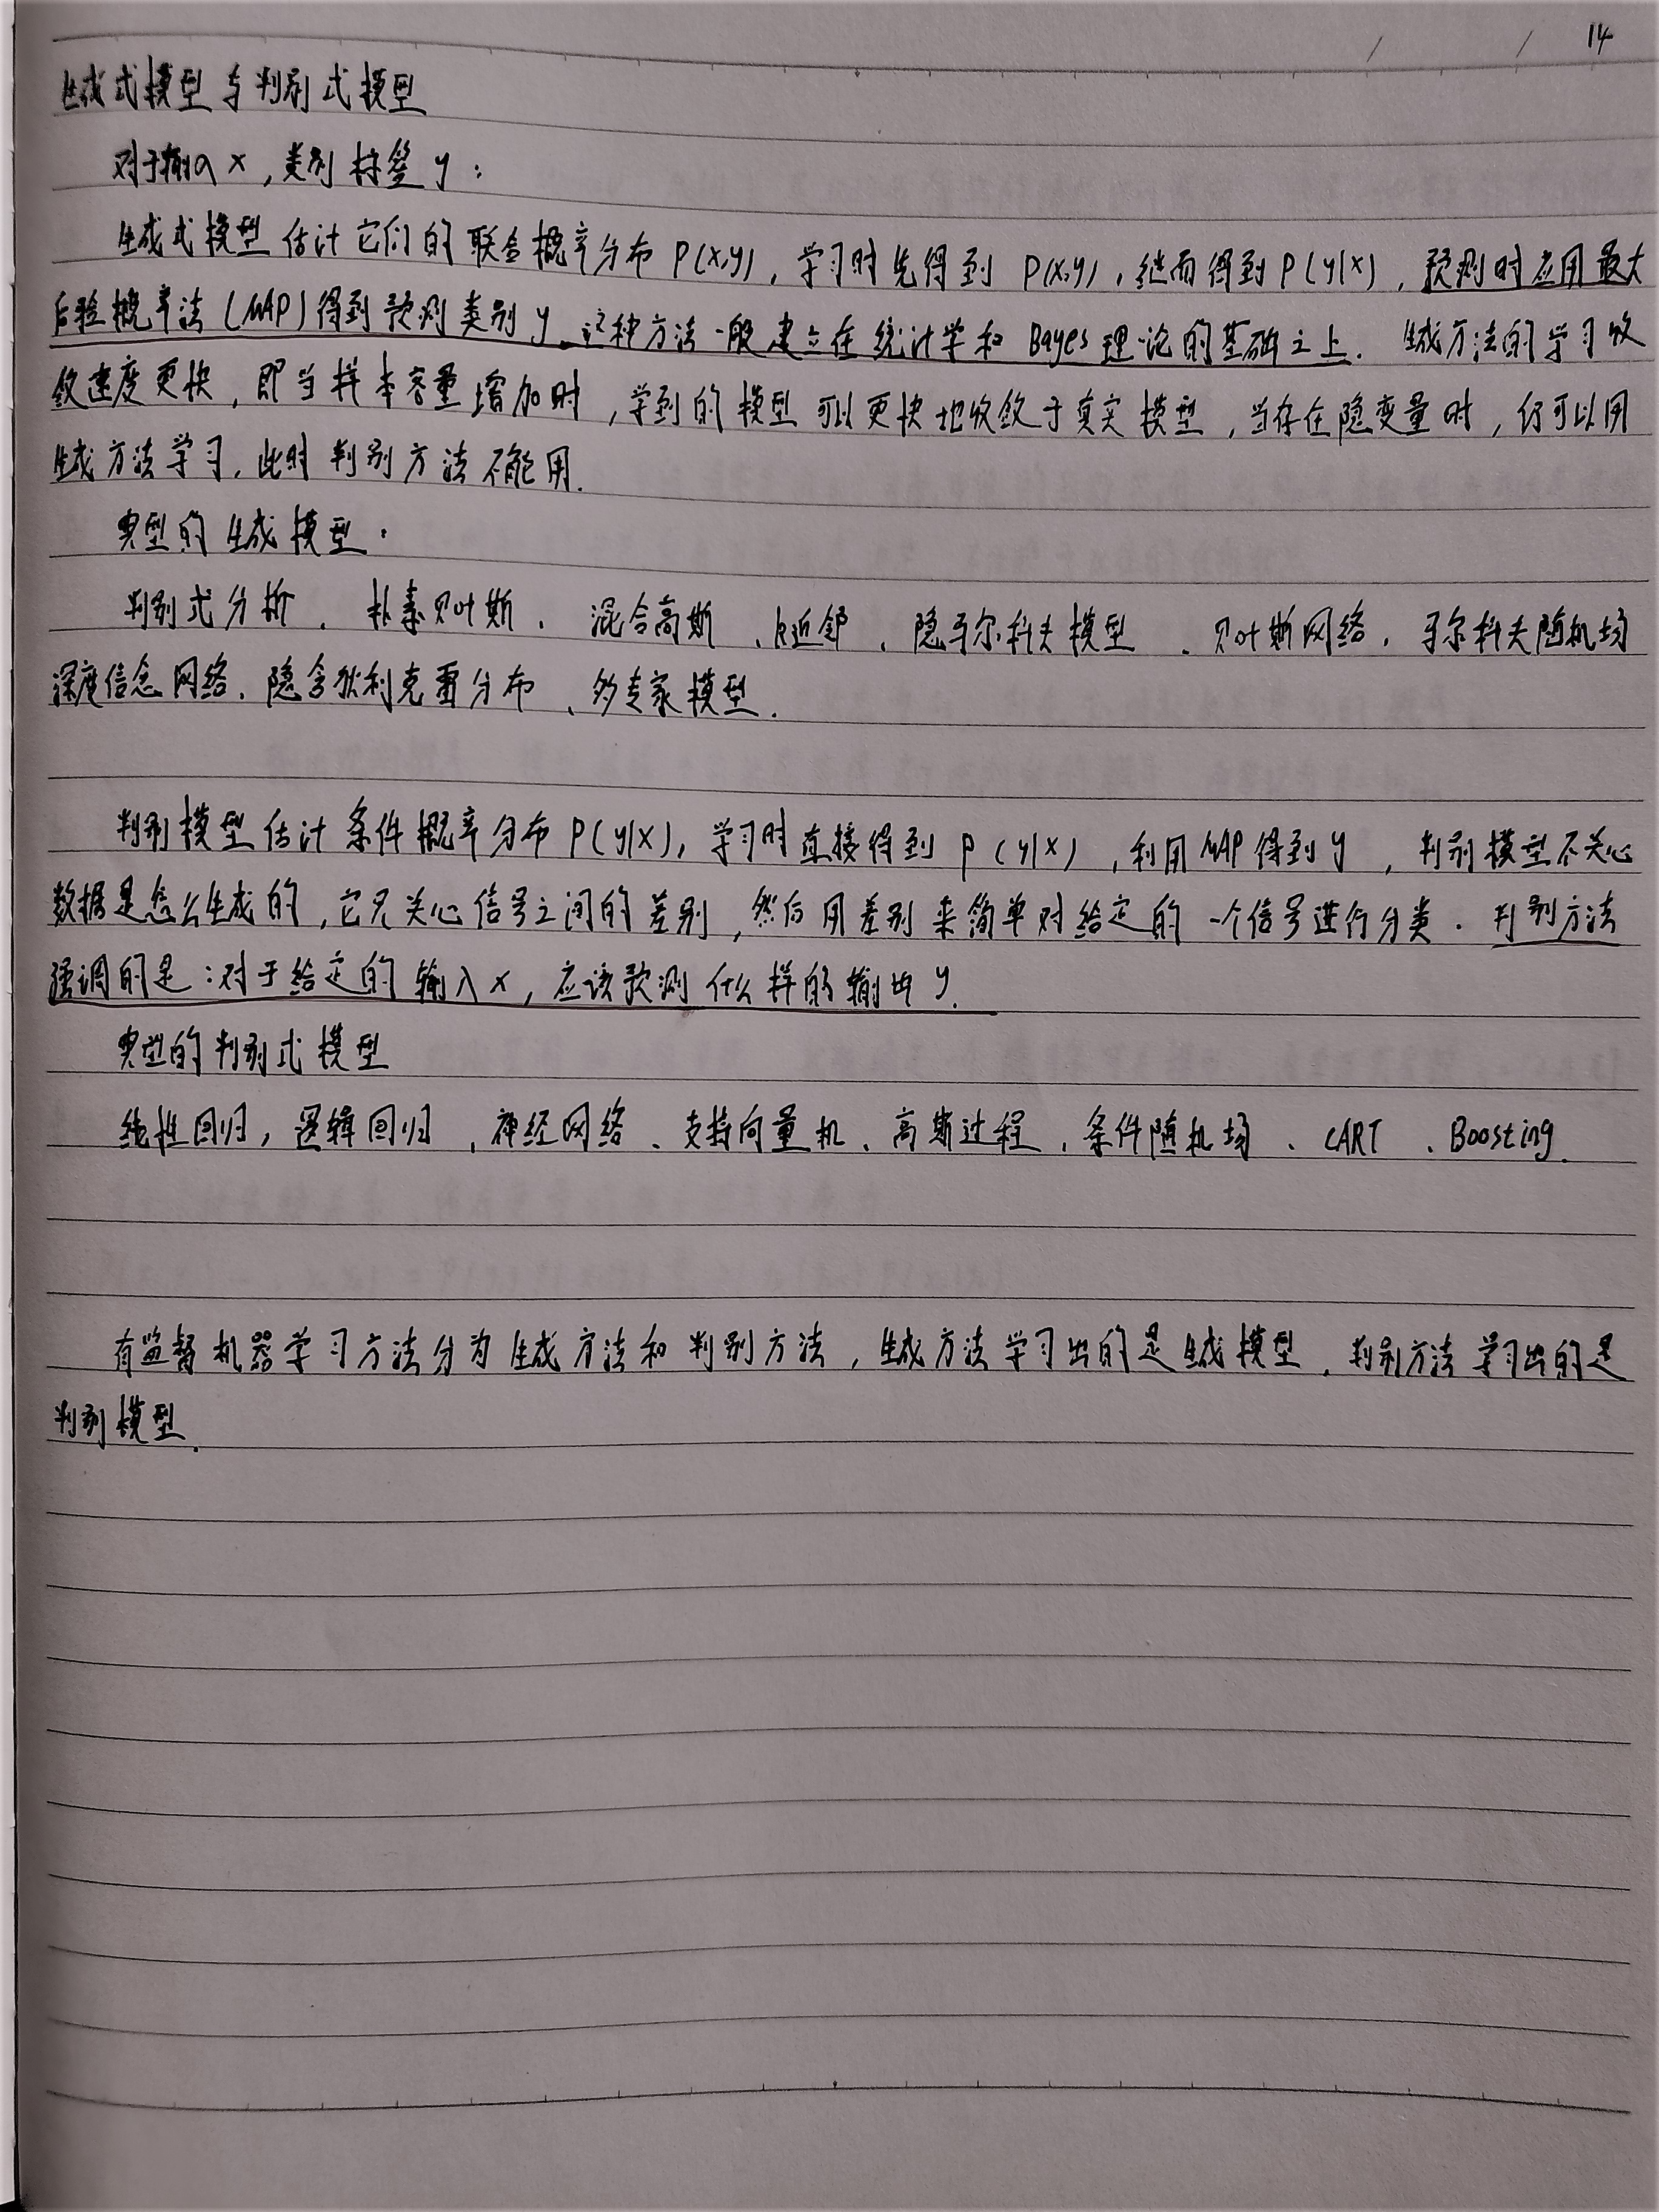 14
生成式模型与判别式模型
对于输入x,类别标签y:
生成式模型估计它们的联合概率分布P(x,y),学习时先得到P(x,y),继而得到P(y|x),预测时应用最大
后验概率法(MAP)得到预测类别y.这种方法一般建立在统计学和Bayes理论的基础之上.生成方法的学习收
敛速度更快,即当样本容量增加时,学到的模型可以更快地收敛于真实模型,当存在隐变量时,仍可以用
生成方法学习,此时判别方法不能用.
典型的生成模型:
判别式分析、朴素贝叶斯、混合高斯、k近邻、隐马尔科夫模型、贝叶斯网络、马尔科夫随机场
深度信念网络、隐含狄利克雷分布、多专家模型.
判别模型估计条件概率分布P(y|x),学习时直接得到P(y|x),利用MAP得到y,判别模型不关心
数据是怎么生成的,它只关心信号之间的差别,然后用差别来简单对给定的一个信号进行分类.判别方法
强调的是:对于给定的输入x,应该预测什么样的输出y.
典型的判别式模型
线性回归,逻辑回归,神经网络、支持向量机、高斯过程,条件随机场、CART、Boosting.
有监督机器学习方法分为生成方法和判别方法,生成方法学习出的是生成模型,判别方法学习出的是
判别模型.